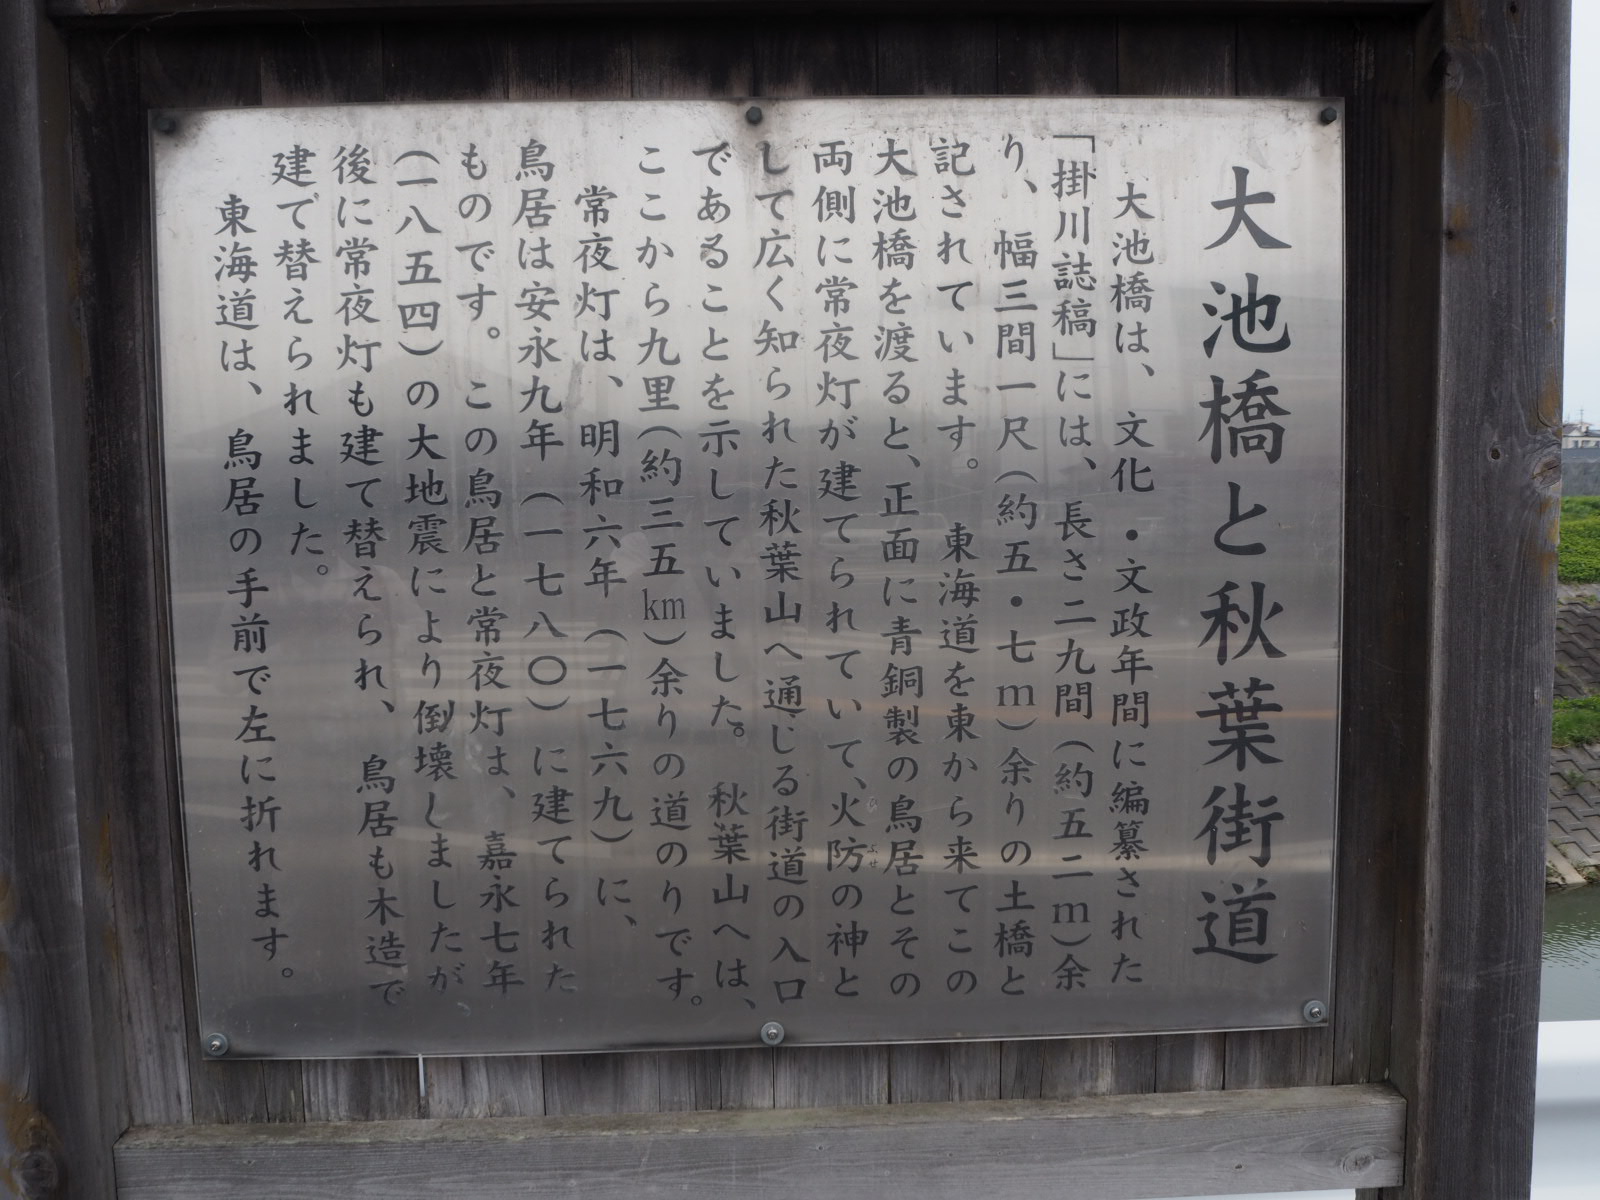 大池橋と秋葉街道
大池橋は、文化・文政年間に編纂された
「掛川誌稿」には、長さ二九間(約五二m)余
り、幅三間一尺(約五・七m)余りの土橋と
記されています。東海道を東から来てこの
大池橋を渡ると、正面に青銅製の鳥居とその
両側に常夜灯が建てられていて、火防の神と
ひぶせ
して広く知られた秋葉山へ通じる街道の入口
であることを示していました。秋葉山へは、
ここから九里(約三五km)余りの道のりです。
常夜灯は、明和六年(一七六九)に、
鳥居は安永九年(一七八〇)に建てられた
ものです。この鳥居と常夜灯は、嘉永七年
(一八五四)の大地震により倒壊しましたが
後に常夜灯も建て替えられ、鳥居も木造で
建て替えられました。
東海道は、鳥居の手前で左に折れます。